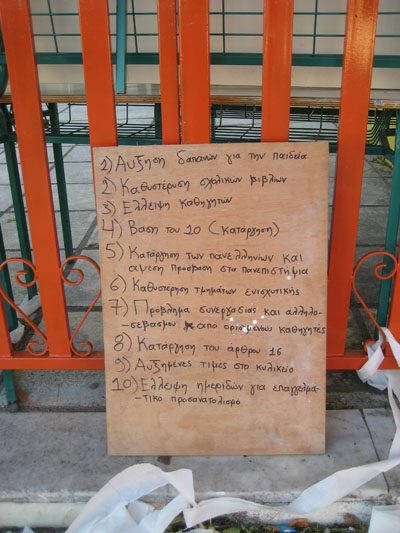 1) Αυξηση δαπανών για την παιδεία
2) Καθυστέρυση σχολικών βιβλίων
3) Ελλειψη καθηγητων
4) Βαση του 10 (κατάργηση)
5) Κατάργηση των πανελληνίων και
αμεση πρόσβαση στα πανεπιστήμια
6) Καθυστέρηση τμημάτων ενισχυτικής
7) Πρόβλημα συνεργασίας και αλληλο-
-σεβασμου από ορισμένους καθηγητές
8) Κατάργηση του άρθρου 16
9) Αυξημένες τιμές στο κυλικείο
10) Ελλειψη ημερίδων για επαγγελμα-
-τικό προσανατολισμο